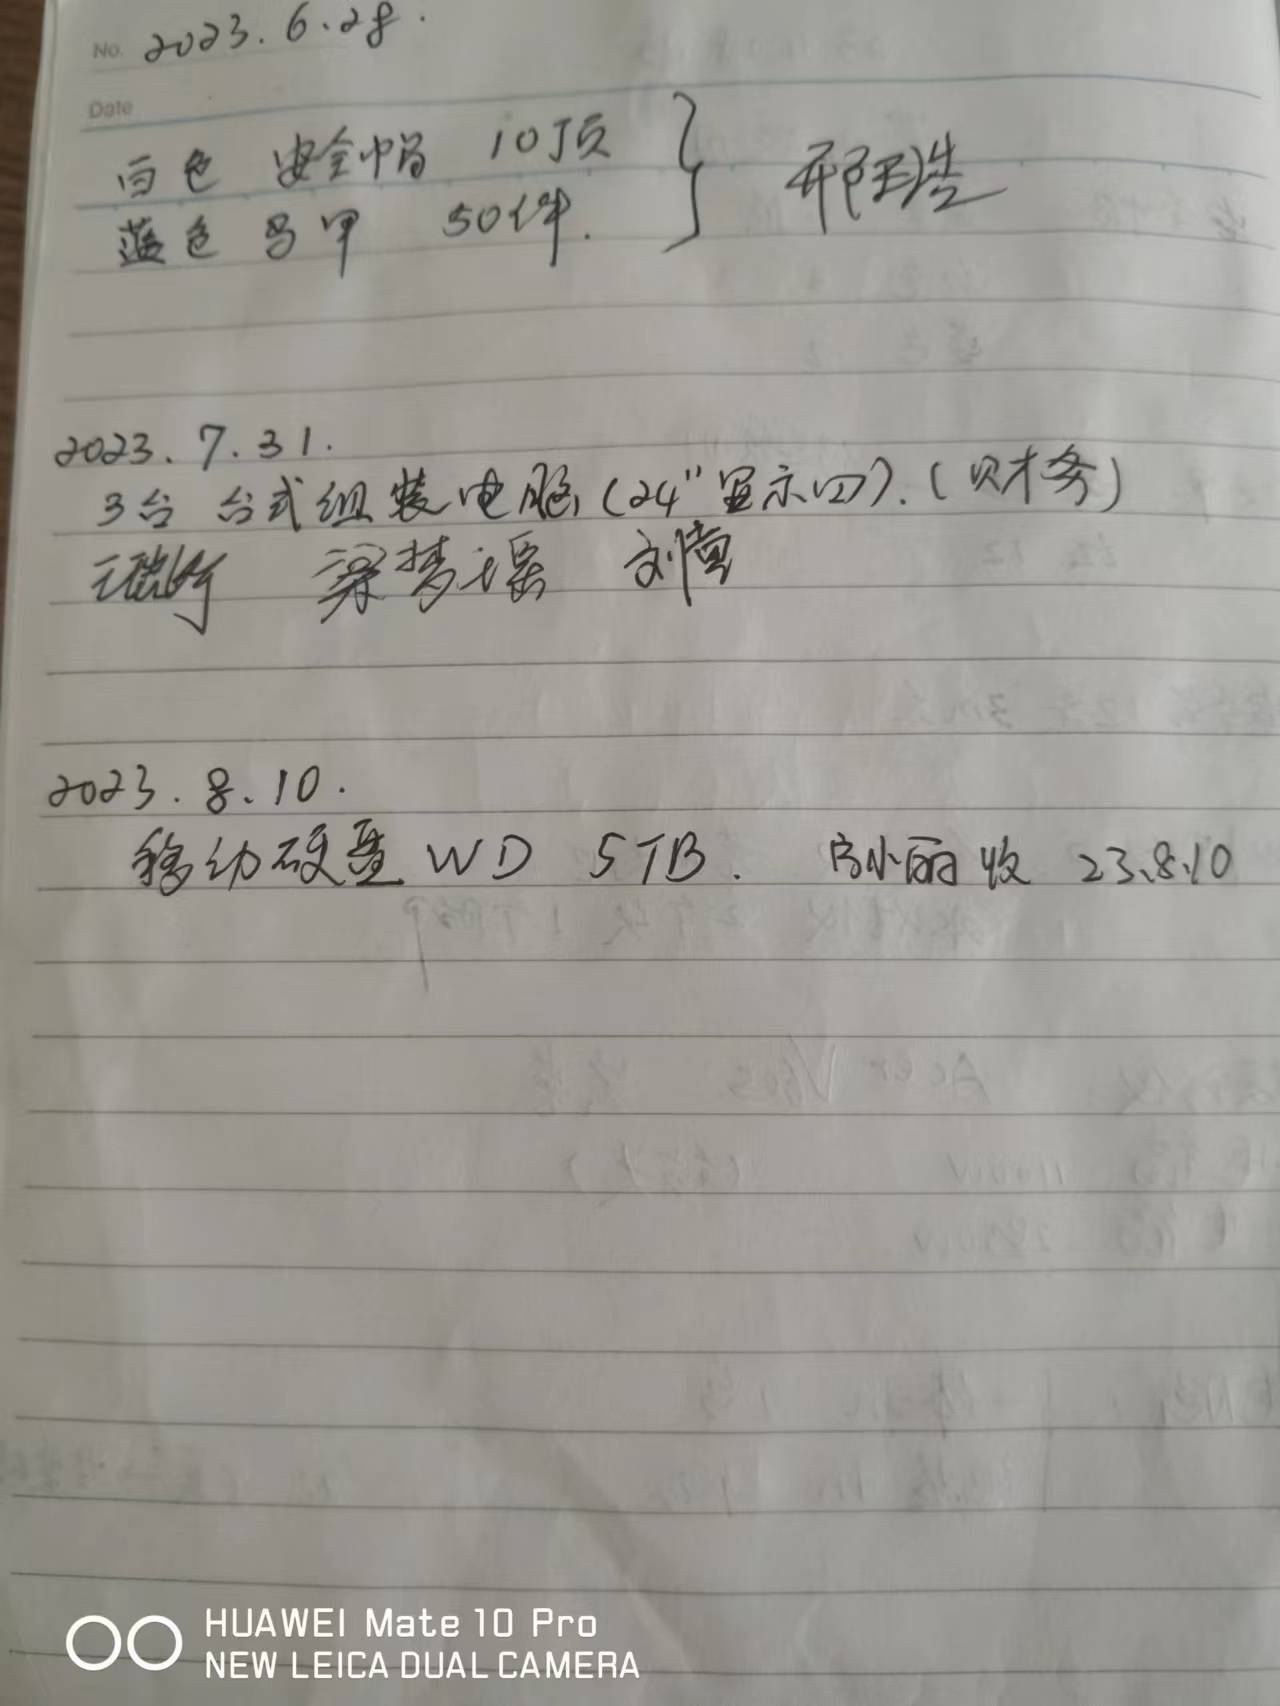 No. 2023.6.28.
Date
白色 安全帽 10顶
蓝色 马甲 50件.
2023.7.31.
3台 台式组装电脑(24"显示四).(财务)
梁梦瑶 刘萱
2023.8.10.
移动硬盘 WD 5TB. 小丽收 23.8.10
HUAWEI Mate 10 Pro
NEW LEICA DUAL CAMERA